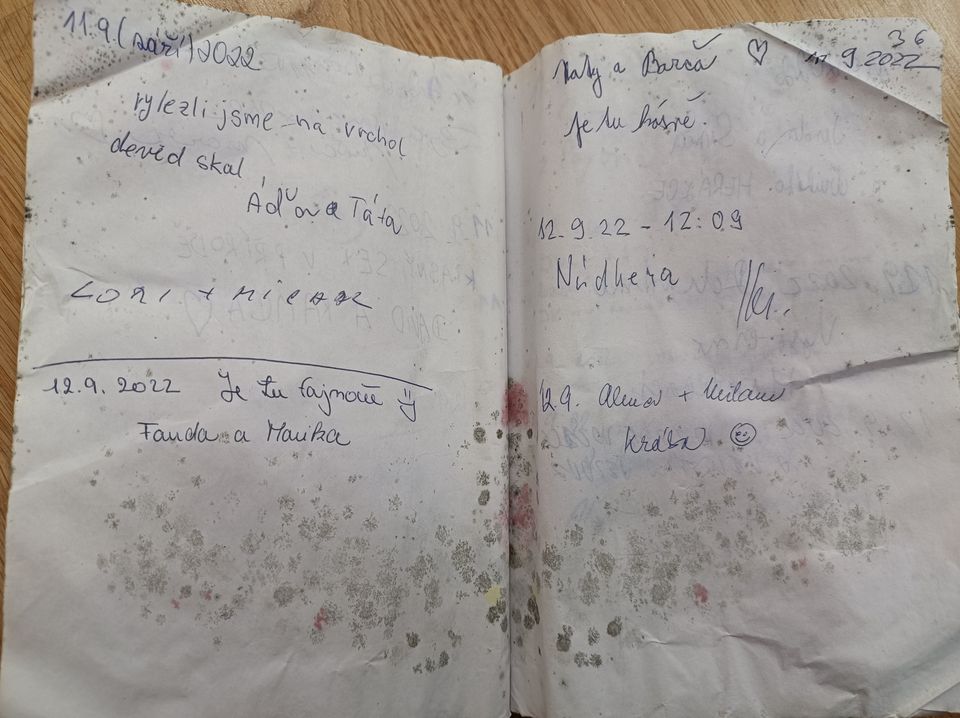 11.9.(září) 2022
vylezli jsme na vrchol
devíd skal,
Áďa a Táta
LORI + MICHAL
12.9. 2022 Je tu fajnově
Fanda a Maruška
36
Naty a Barča ♡ 11.9.2022
je tu krásně.
12.9.22 - 12:09
Nádhera
12.9. Alena + Milan
krása ☺